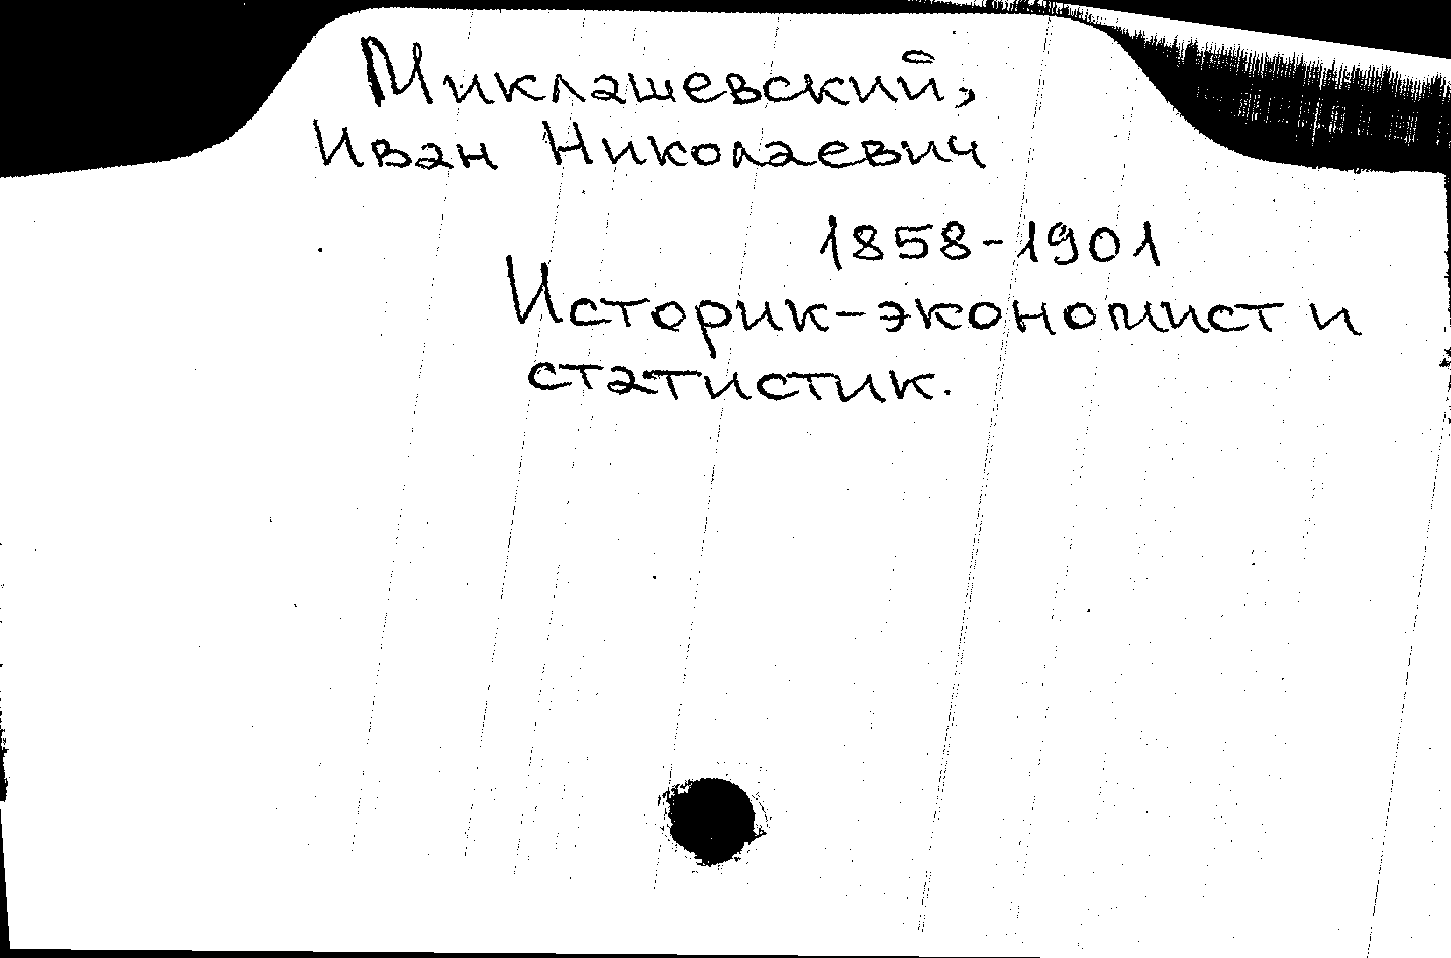 Миклашевский,
Иван Николаевич
1858-1901
Историк-экономист и
статистик.